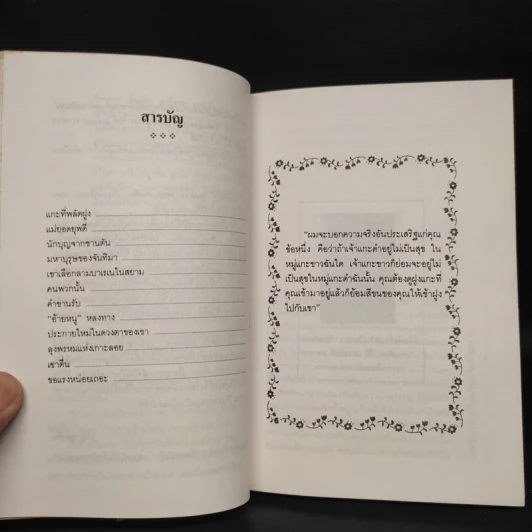 สารบัญ
แกะที่พลัดฝูง
แม่ยอดยุพดี
นักบุญจากชานตัน
มหาบุรุษของจันทิมา
เขาเลือกลามาบาเรนในสยาม
คนพวกนั้น
คำขานรับ
"อ้ายหนู" หลงทาง
ประกายใหม่ในดวงตาของเขา
ลุงพรหมแห่งเกาะลอย
เขาตื่น
ขอแรงหน่อยเถอะ
"ผมจะบอกความจริงอันประเสริฐแก่คุณ
ข้อหนึ่ง คือว่าถ้าเจ้าแกะดำอยู่ไม่เป็นสุข ใน
หมู่แกะขาวฉันใด เจ้าแกะขาวก็ย่อมจะอยู่ไม่
เป็นสุขในหมู่แกะดำฉันนั้น คุณต้องดูฝูงแกะที่
คุณเข้ามาอยู่แล้วก็ย้อมสีขนของคุณให้เข้าฝูง
ไปกับเขา"